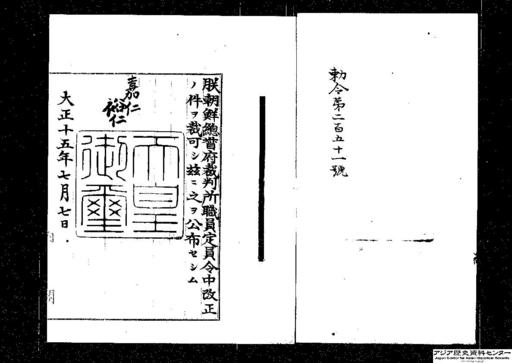 朕朝鮮總督府裁判所職員定員令中改正
ノ件ヲ裁可シ茲ニ之ヲ公布セシム
嘉仁
裕仁
天皇
御璽
大正十五年七月七日
勅令第二百五十一號
アジア歴史資料センター
Japan Center for Asian Historical Records